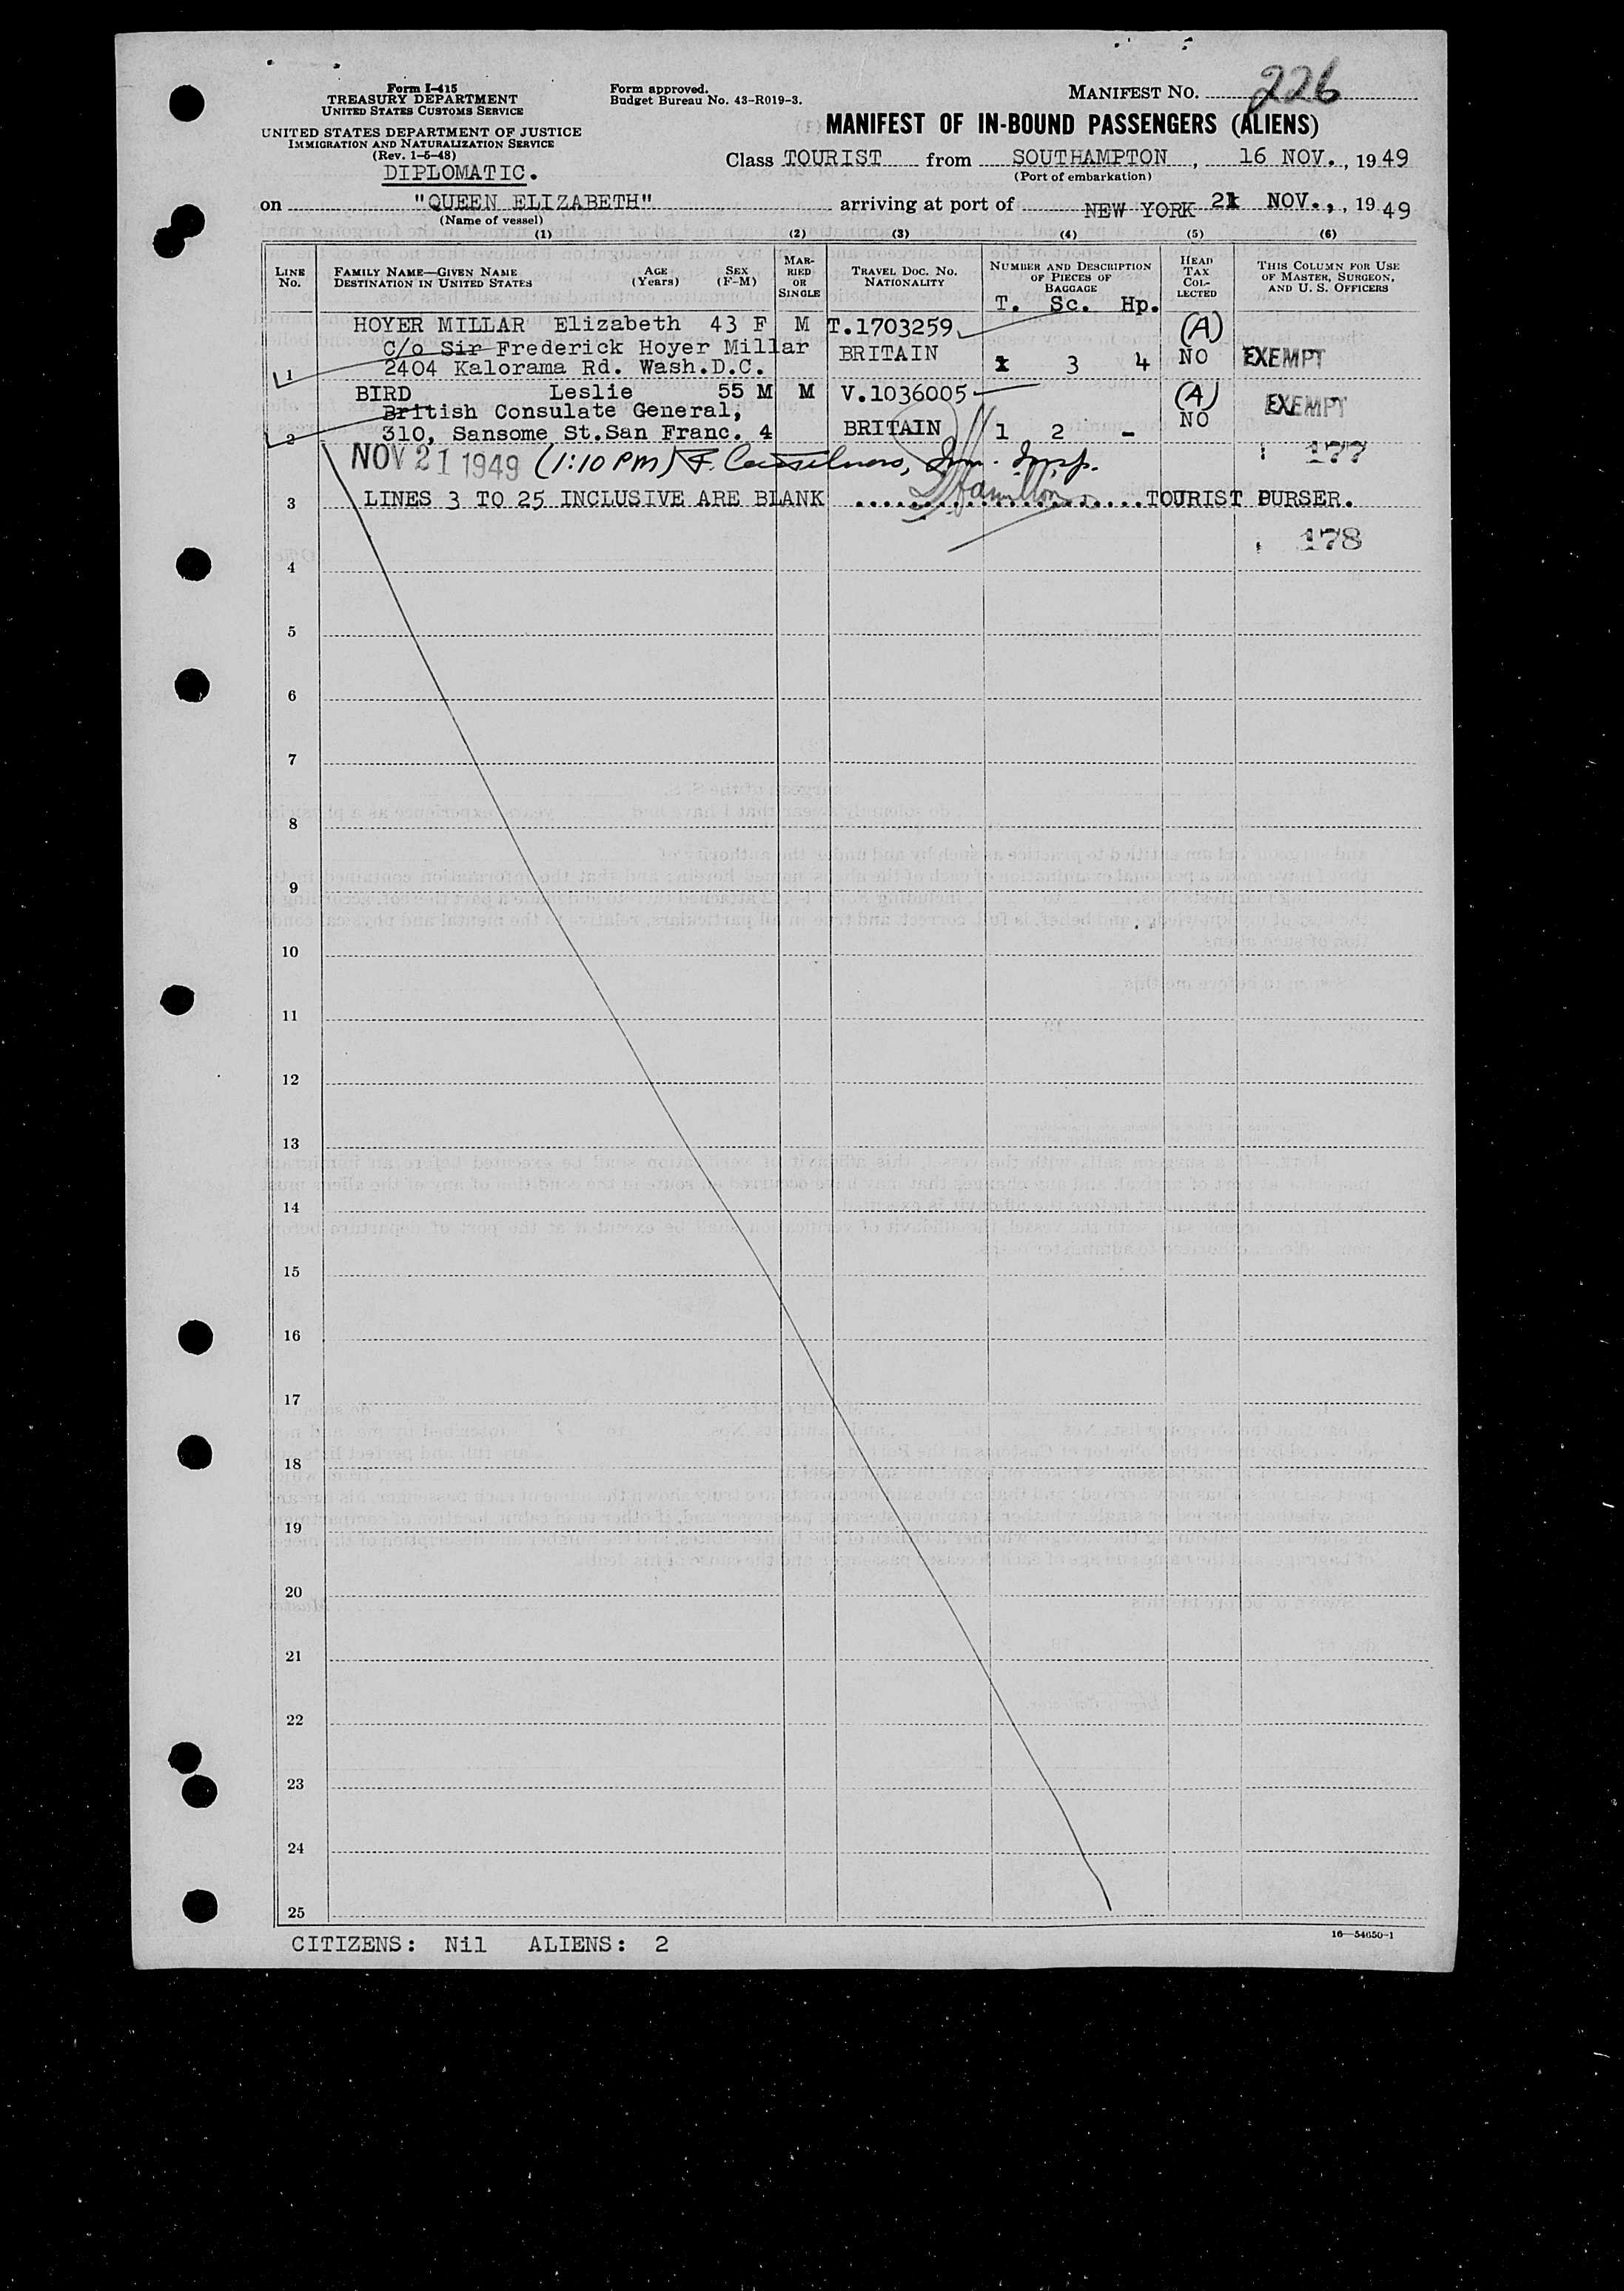 Form I-415
TREASURY DEPARTMENT
UNITED STATES CUSTOMS SERVICE
UNITED STATES DEPARTMENT OF JUSTICE
IMMIGRATION AND NATURALIZATION SERVICE
(Rev. 1-5-48)
DIPLOMATIC.
Form approved.
Budget Bureau No. 43-R019-3.
MANIFEST NO. 226
MANIFEST OF IN-BOUND PASSENGERS (ALIENS)
Class TOURIST from SOUTHAMPTON, 16 NOV., 1949
(Port of embarkation)
on "QUEEN ELIZABETH" arriving at port of NEW YORK 21 NOV., 1949
(Name of vessel)
(1) (2) (3) (4) (5) (6)
LINE No.
FAMILY NAME—GIVEN NAME
DESTINATION IN UNITED STATES
AGE (Years)
SEX (F-M)
MARRIED OR SINGLE
TRAVEL DOC. NO.
NATIONALITY
NUMBER AND DESCRIPTION OF PIECES OF BAGGAGE
T. Sc. Hp.
HEAD TAX COLLECTED
THIS COLUMN FOR USE OF MASTER, SURGEON, AND U. S. OFFICERS
HOYER MILLAR Elizabeth 43 F M T.1703259 (A)
C/o Sir Frederick Hoyer Millar BRITAIN 3 4 NO EXEMPT
1 2404 Kalorama Rd. Wash.D.C.
BIRD Leslie 55 M M V.1036005 (A) EXEMPT
British Consulate General, NO
2 310, Sansome St.San Franc. 4 BRITAIN 1 2 -
NOV 21 1949 (1:10 PM) Imm. Insp. 177
3 LINES 3 TO 25 INCLUSIVE ARE BLANK DHamilton TOURIST PURSER.
178
4
5
6
7
8
9
10
11
12
13
14
15
16
17
18
19
20
21
22
23
24
25
16—54650-1
CITIZENS: Nil ALIENS: 2